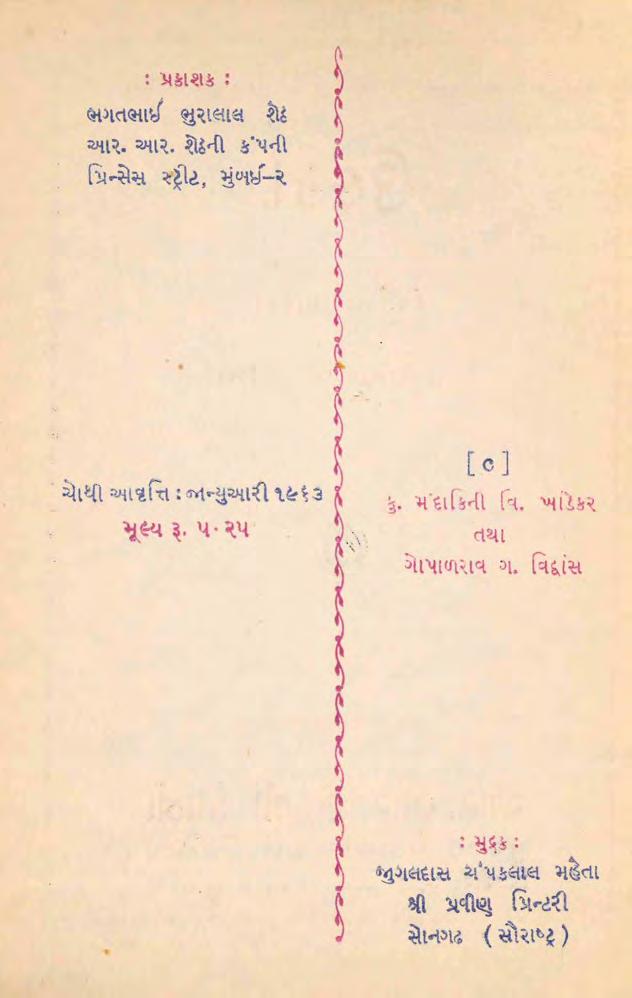 : પ્રકાશક :
ભગતભાઈ ભુરાલાલ શેઠ
આર. આર. શેઠની કંપની
પ્રિન્સેસ સ્ટ્રીટ, મુંબઈ–૨
ચોથી આવૃત્તિ : જાન્યુઆરી ૧૯૬૩
મૂલ્ય રૂ. ૫·૨૫
[c]
કું. મંદાકિની વિ. ખાંડેકર
તથા
ગોપાળરાવ ગ. વિદ્વાંસ
: મુદ્રક :
જુગલદાસ ચંપકલાલ મહેતા
શ્રી પ્રવીણ પ્રિન્ટરી
સોનગઢ ( સૌરાષ્ટ્ર )